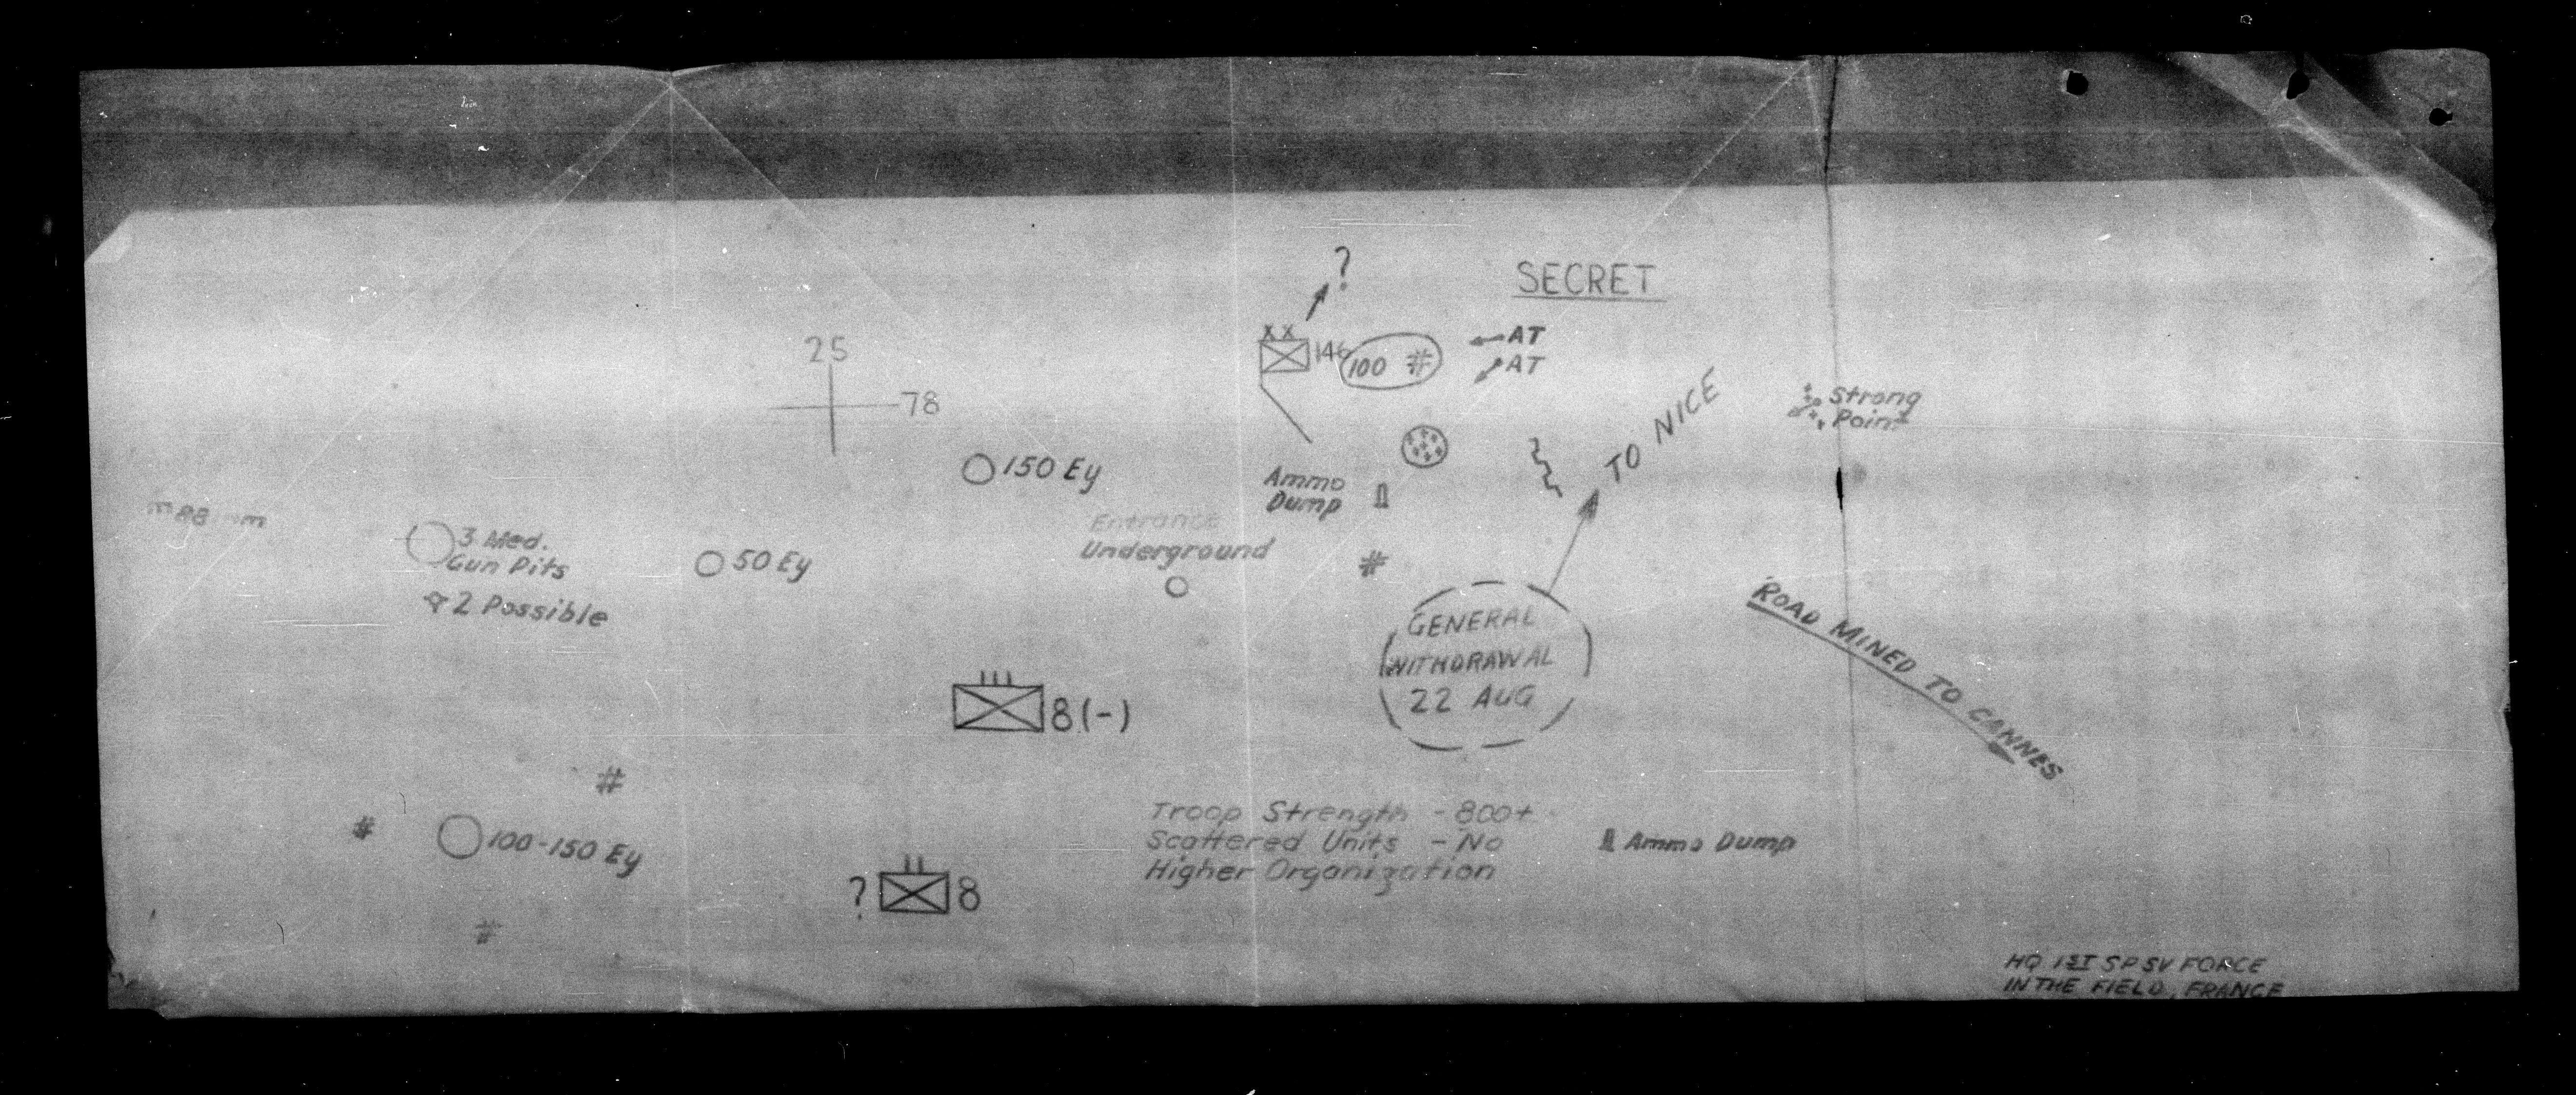 ?
SECRET
XX
146
100 #
AT
AT
25
78
TO NICE
Strong
Point
150 Ey
Ammo
Dump
Entrance
Underground
88 mm
3 Med.
Gun Pits
50 Ey
2 Possible
#
GENERAL
WITHDRAWAL
22 AUG
ROAD MINED TO CANNES
III
8(-)
#
#
100-150 Ey
Troop Strength - 800+
Scattered Units - No
Higher Organization
Ammo Dump
II
? 8
#
HQ 1ST SP SV FORCE
IN THE FIELD, FRANCE